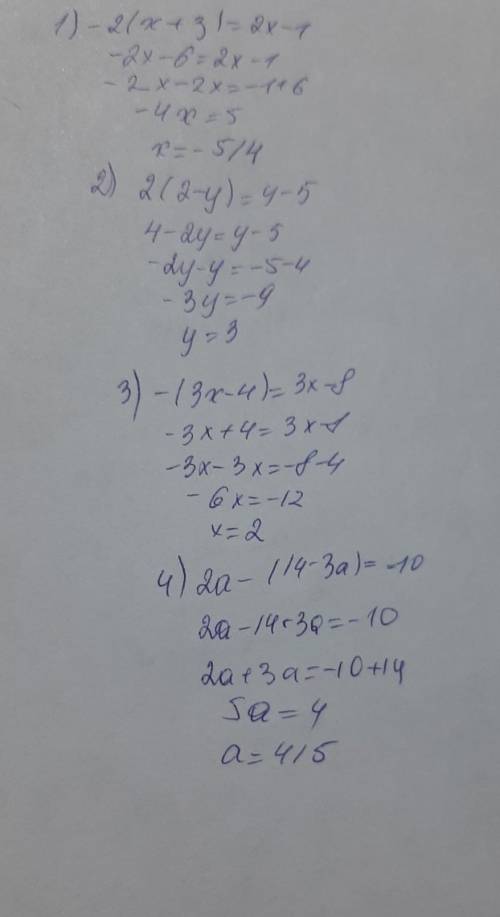 1) -2(x+3)=2x-1
-2x-6=2x-1
-2x-2x=-1+6
-4x=5
x=-5/4
2) 2(2-y)=y-5
4-2y=y-5
-2y-y=-5-4
-3y=-9
y=3
3) -(3x-4)=3x-8
-3x+4=3x-8
-3x-3x=-8-4
-6x=-12
x=2
4) 2a-(14-3a)=-10
2a-14+3a=-10
2a+3a=-10+14
5a=4
a=4/5